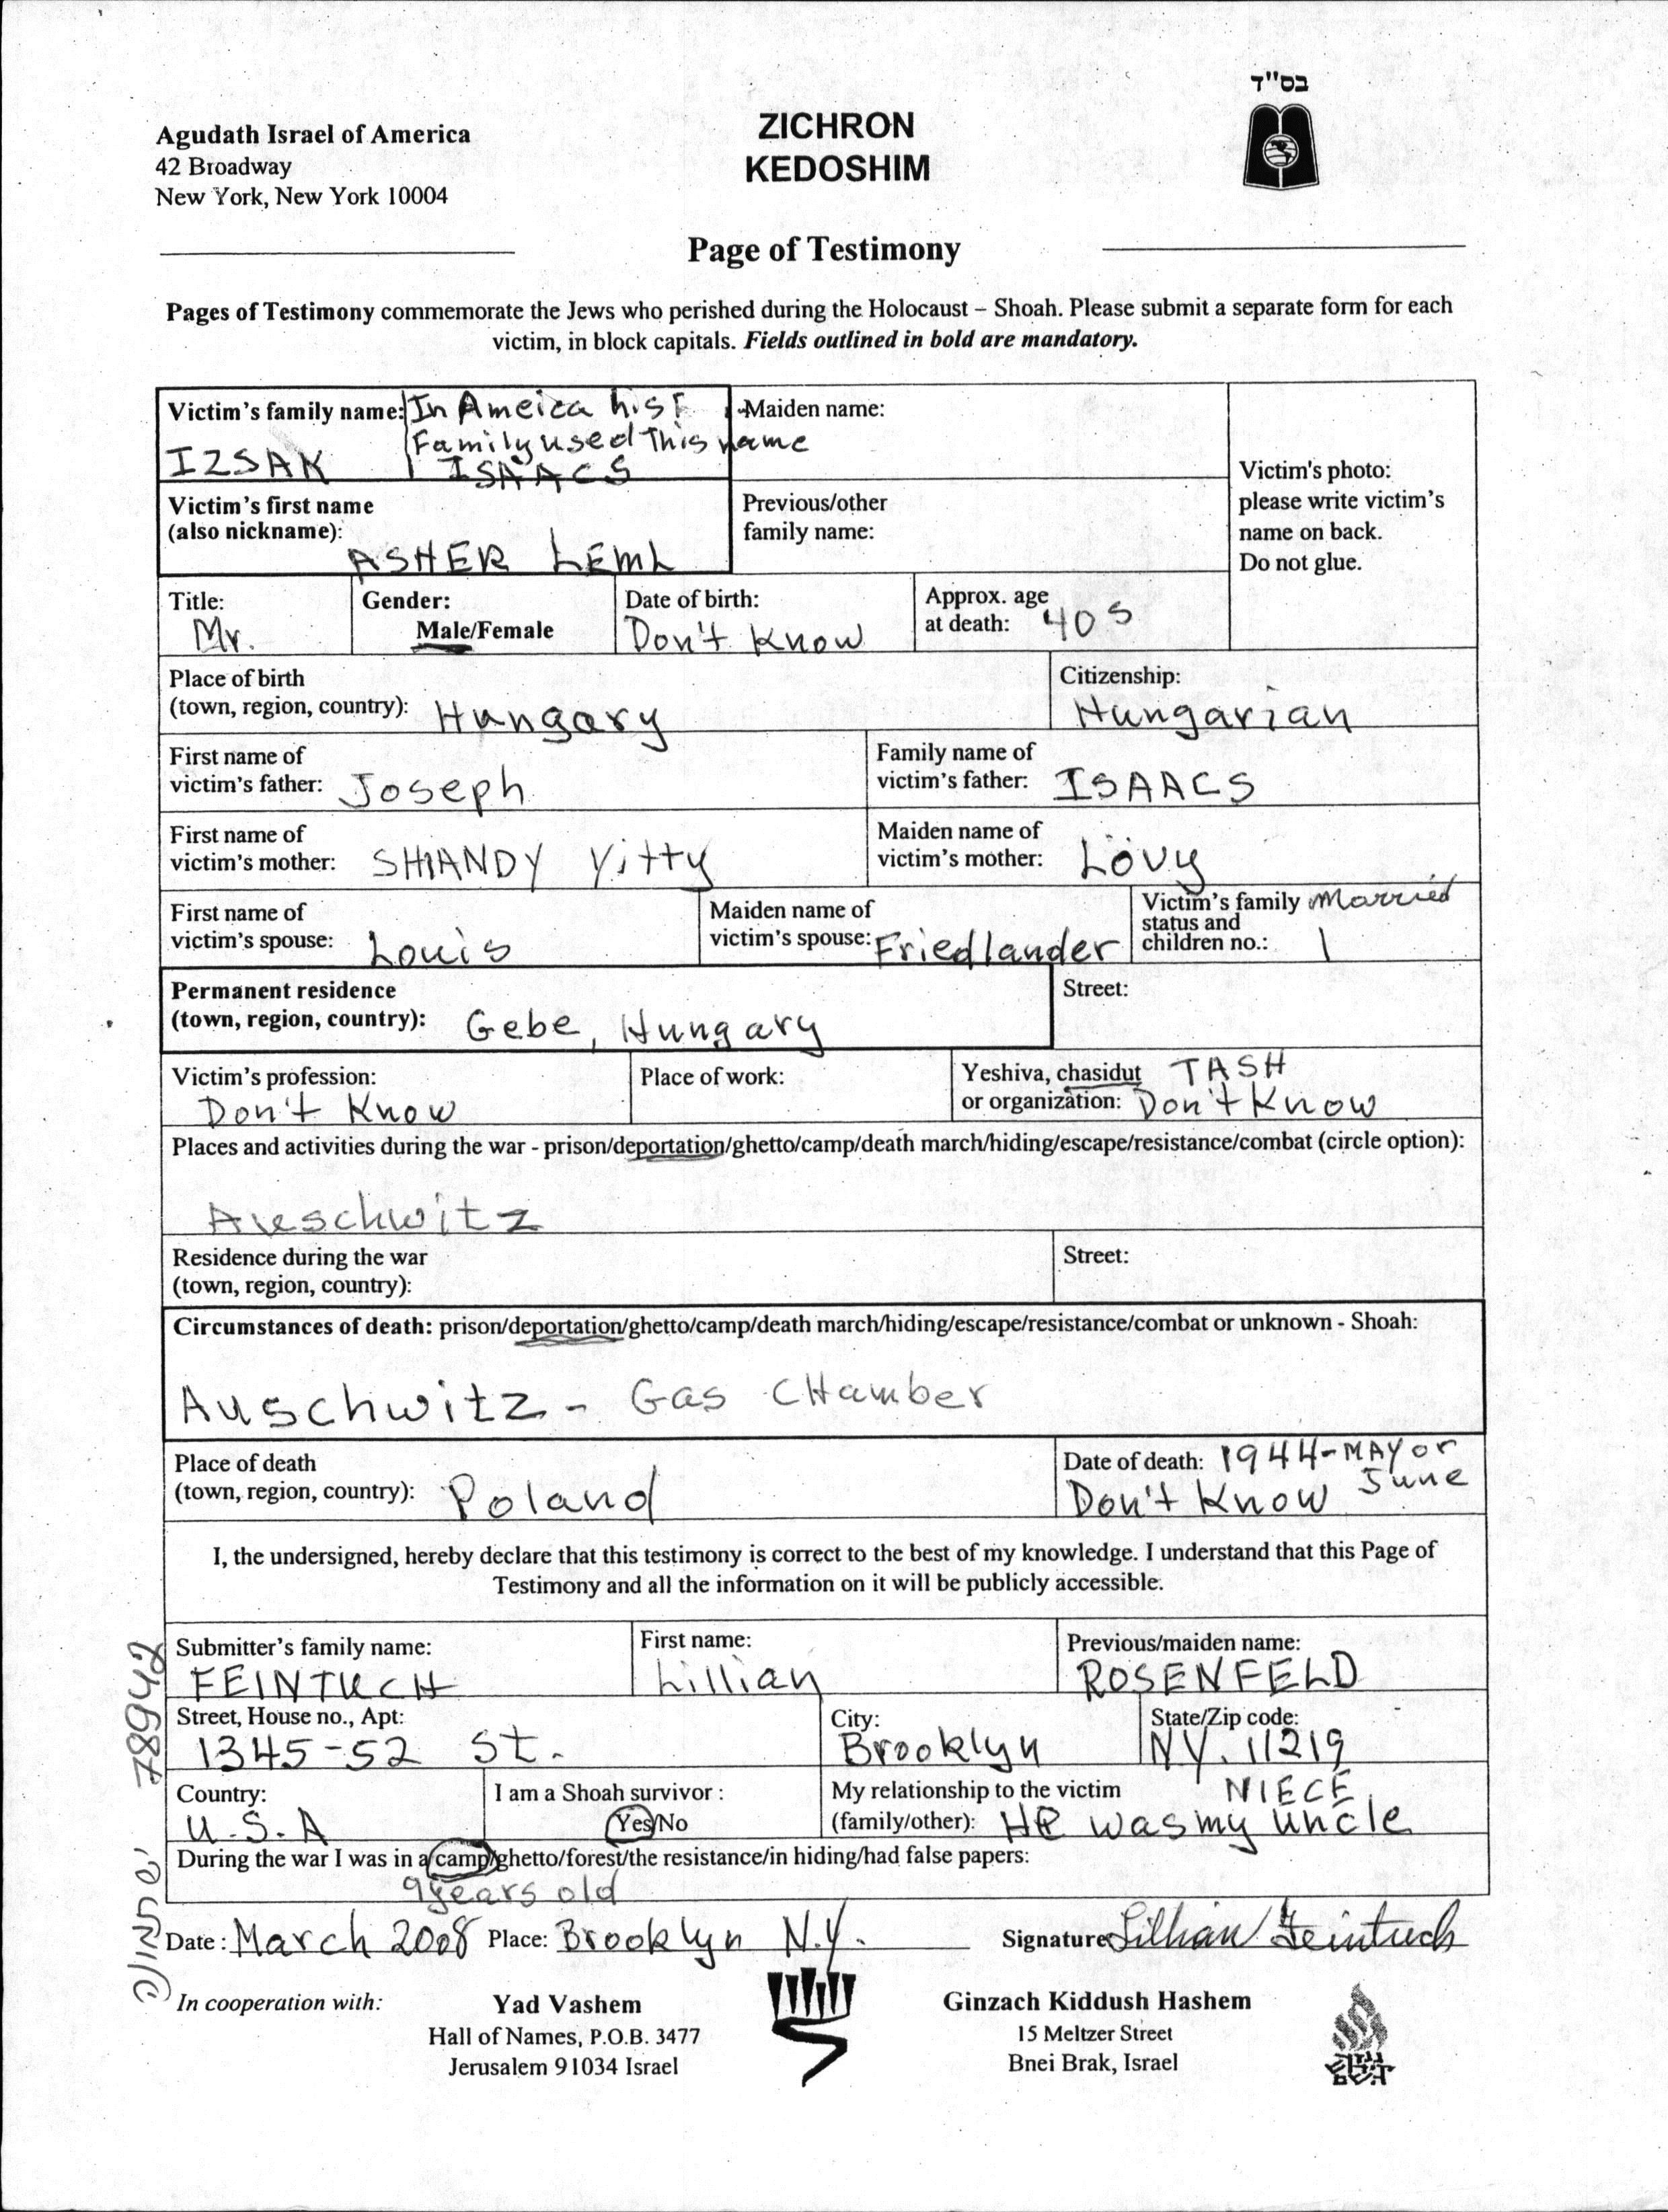 בס"ד
Agudath Israel of America
42 Broadway
New York, New York 10004
ZICHRON
KEDOSHIM
Page of Testimony
Pages of Testimony commemorate the Jews who perished during the Holocaust – Shoah. Please submit a separate form for each
victim, in block capitals. Fields outlined in bold are mandatory.
Victim's family name: In Ameica his
Family used This name
IZSAK ISAACS
Maiden name:
Victim's photo:
please write victim's
name on back.
Do not glue.
Victim's first name
(also nickname):
ASHER LEML
Previous/other
family name:
Title:
Mr.
Gender:
Male/Female
Date of birth:
Don't Know
Approx. age
at death: 40s
Place of birth
(town, region, country): Hungary
Citizenship:
Hungarian
First name of
victim's father: Joseph
Family name of
victim's father: ISAACS
First name of
victim's mother: SHIANDY Yitty
Maiden name of
victim's mother: Lövy
First name of
victim's spouse: Louis
Maiden name of
victim's spouse: Friedlander
Victim's family Married
status and
children no.: 1
Permanent residence
(town, region, country): Gebe, Hungary
Street:
Victim's profession:
Don't Know
Place of work:
Yeshiva, chasidut TASH
or organization: Don't Know
Places and activities during the war - prison/deportation/ghetto/camp/death march/hiding/escape/resistance/combat (circle option):
Aueschwitz
Residence during the war
(town, region, country):
Street:
Circumstances of death: prison/deportation/ghetto/camp/death march/hiding/escape/resistance/combat or unknown - Shoah:
Auschwitz - Gas CHamber
Place of death
(town, region, country): Poland
Date of death: 1944-MAY or
Don't Know June
I, the undersigned, hereby declare that this testimony is correct to the best of my knowledge. I understand that this Page of
Testimony and all the information on it will be publicly accessible.
Submitter's family name:
FEINTUCH
First name:
Lillian
Previous/maiden name:
ROSENFELD
Street, House no., Apt:
1345-52 St.
City:
Brooklyn
State/Zip code:
NY. 11219
Country:
U.S.A
I am a Shoah survivor :
Yes/No
My relationship to the victim NIECE
(family/other): HE was my uncle
During the war I was in a camp/ghetto/forest/the resistance/in hiding/had false papers:
9 years old
Date: March 2008 Place: Brooklyn N.Y. Signature Lillian Feintuch
78942
In cooperation with:
Yad Vashem
Hall of Names, P.O.B. 3477
Jerusalem 91034 Israel
Ginzach Kiddush Hashem
15 Meltzer Street
Bnei Brak, Israel